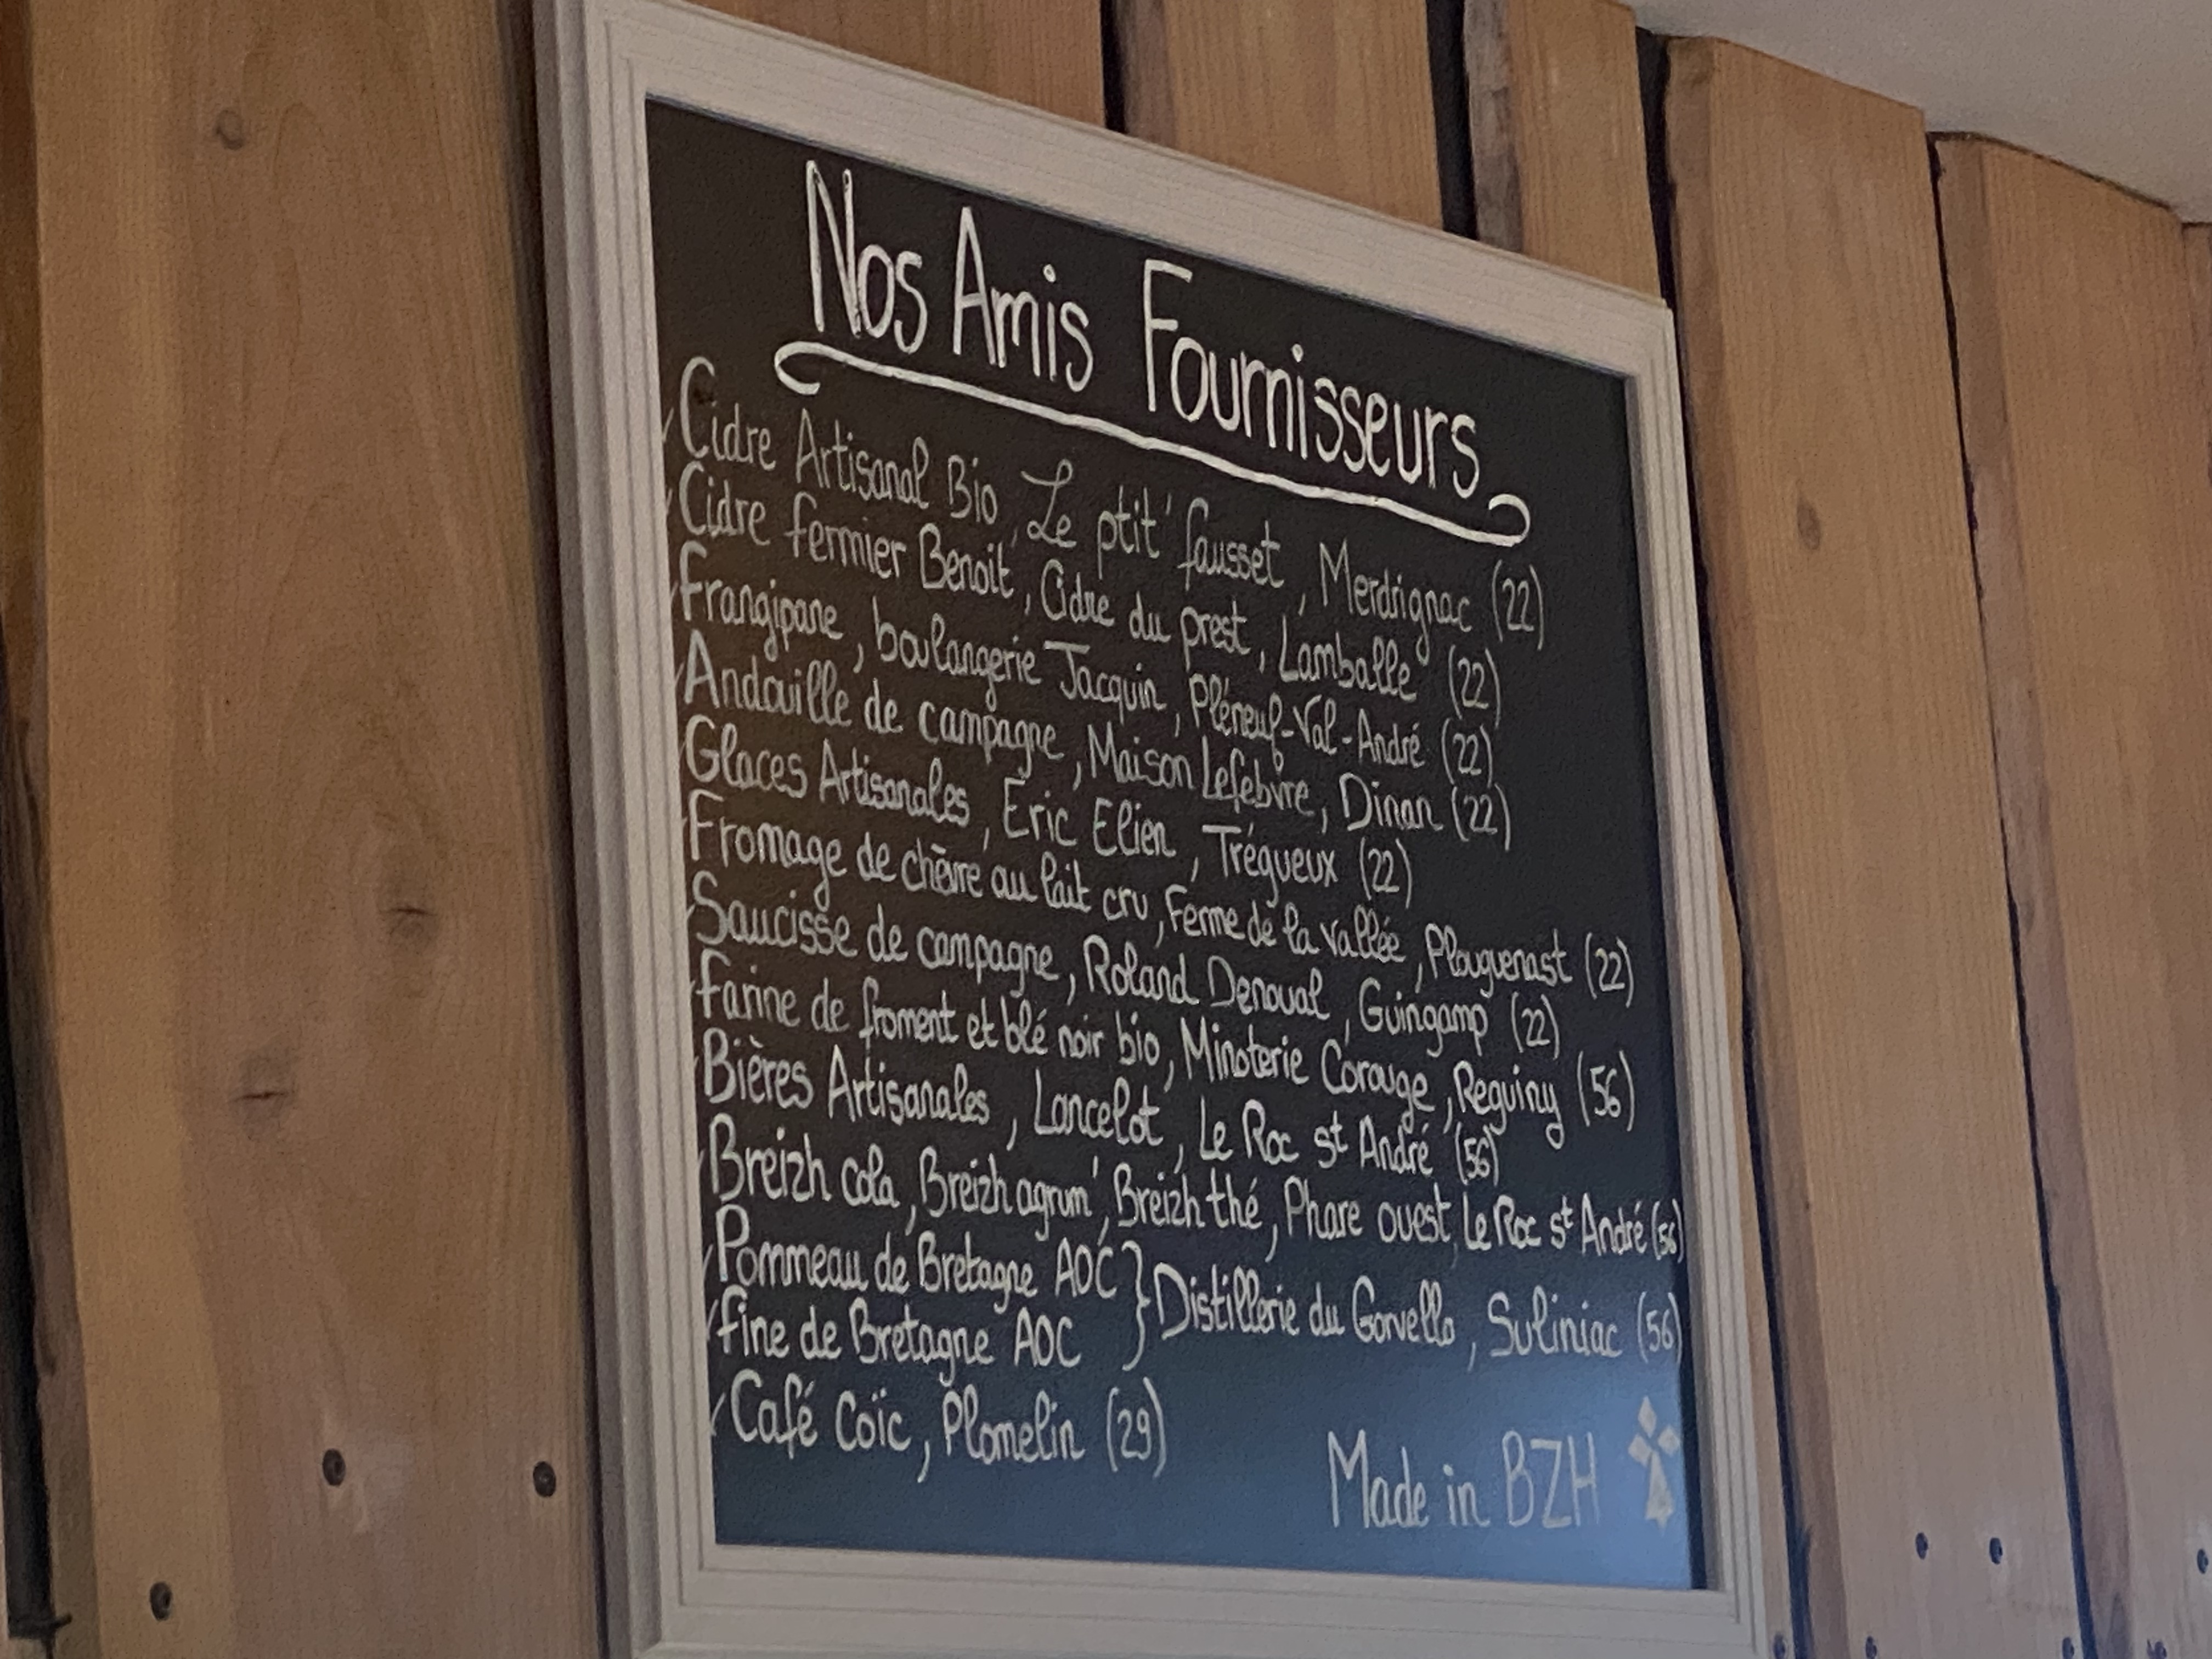 Nos Amis Fournisseurs
Cidre Artisanal Bio, Le ptit' fausset, Merdrignac (22)
Cidre fermier Benoit, Cidre du prest, Lamballe (22)
Frangipane, boulangerie Jacquin, Pléneuf-Val-André (22)
Andouille de campagne, Maison Lefebvre, Dinan (22)
Glaces Artisanales, Eric Elien, Trégueux (22)
Fromage de chèvre au lait cru, Ferme de la vallée, Plouguenast (22)
Saucisse de campagne, Roland Denoual, Guingamp (22)
Farine de froment et blé noir bio, Minoterie Corouge, Reguiny (56)
Bières Artisanales, Lancelot, Le Roc st André (56)
Breizh cola, Breizh agrum', Breizh thé, Phare ouest, Le Roc st André (56)
Pommeau de Bretagne AOC
fine de Bretagne AOC } Distillerie du Gorvello, Suliniac (56)
Café Coïc, Plomelin (29)
Made in BZH